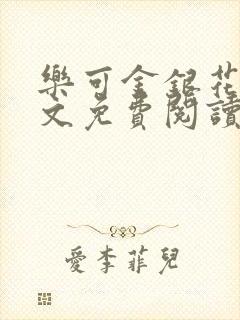 樂可金銀花
文免費閱讀
愛李菲兒